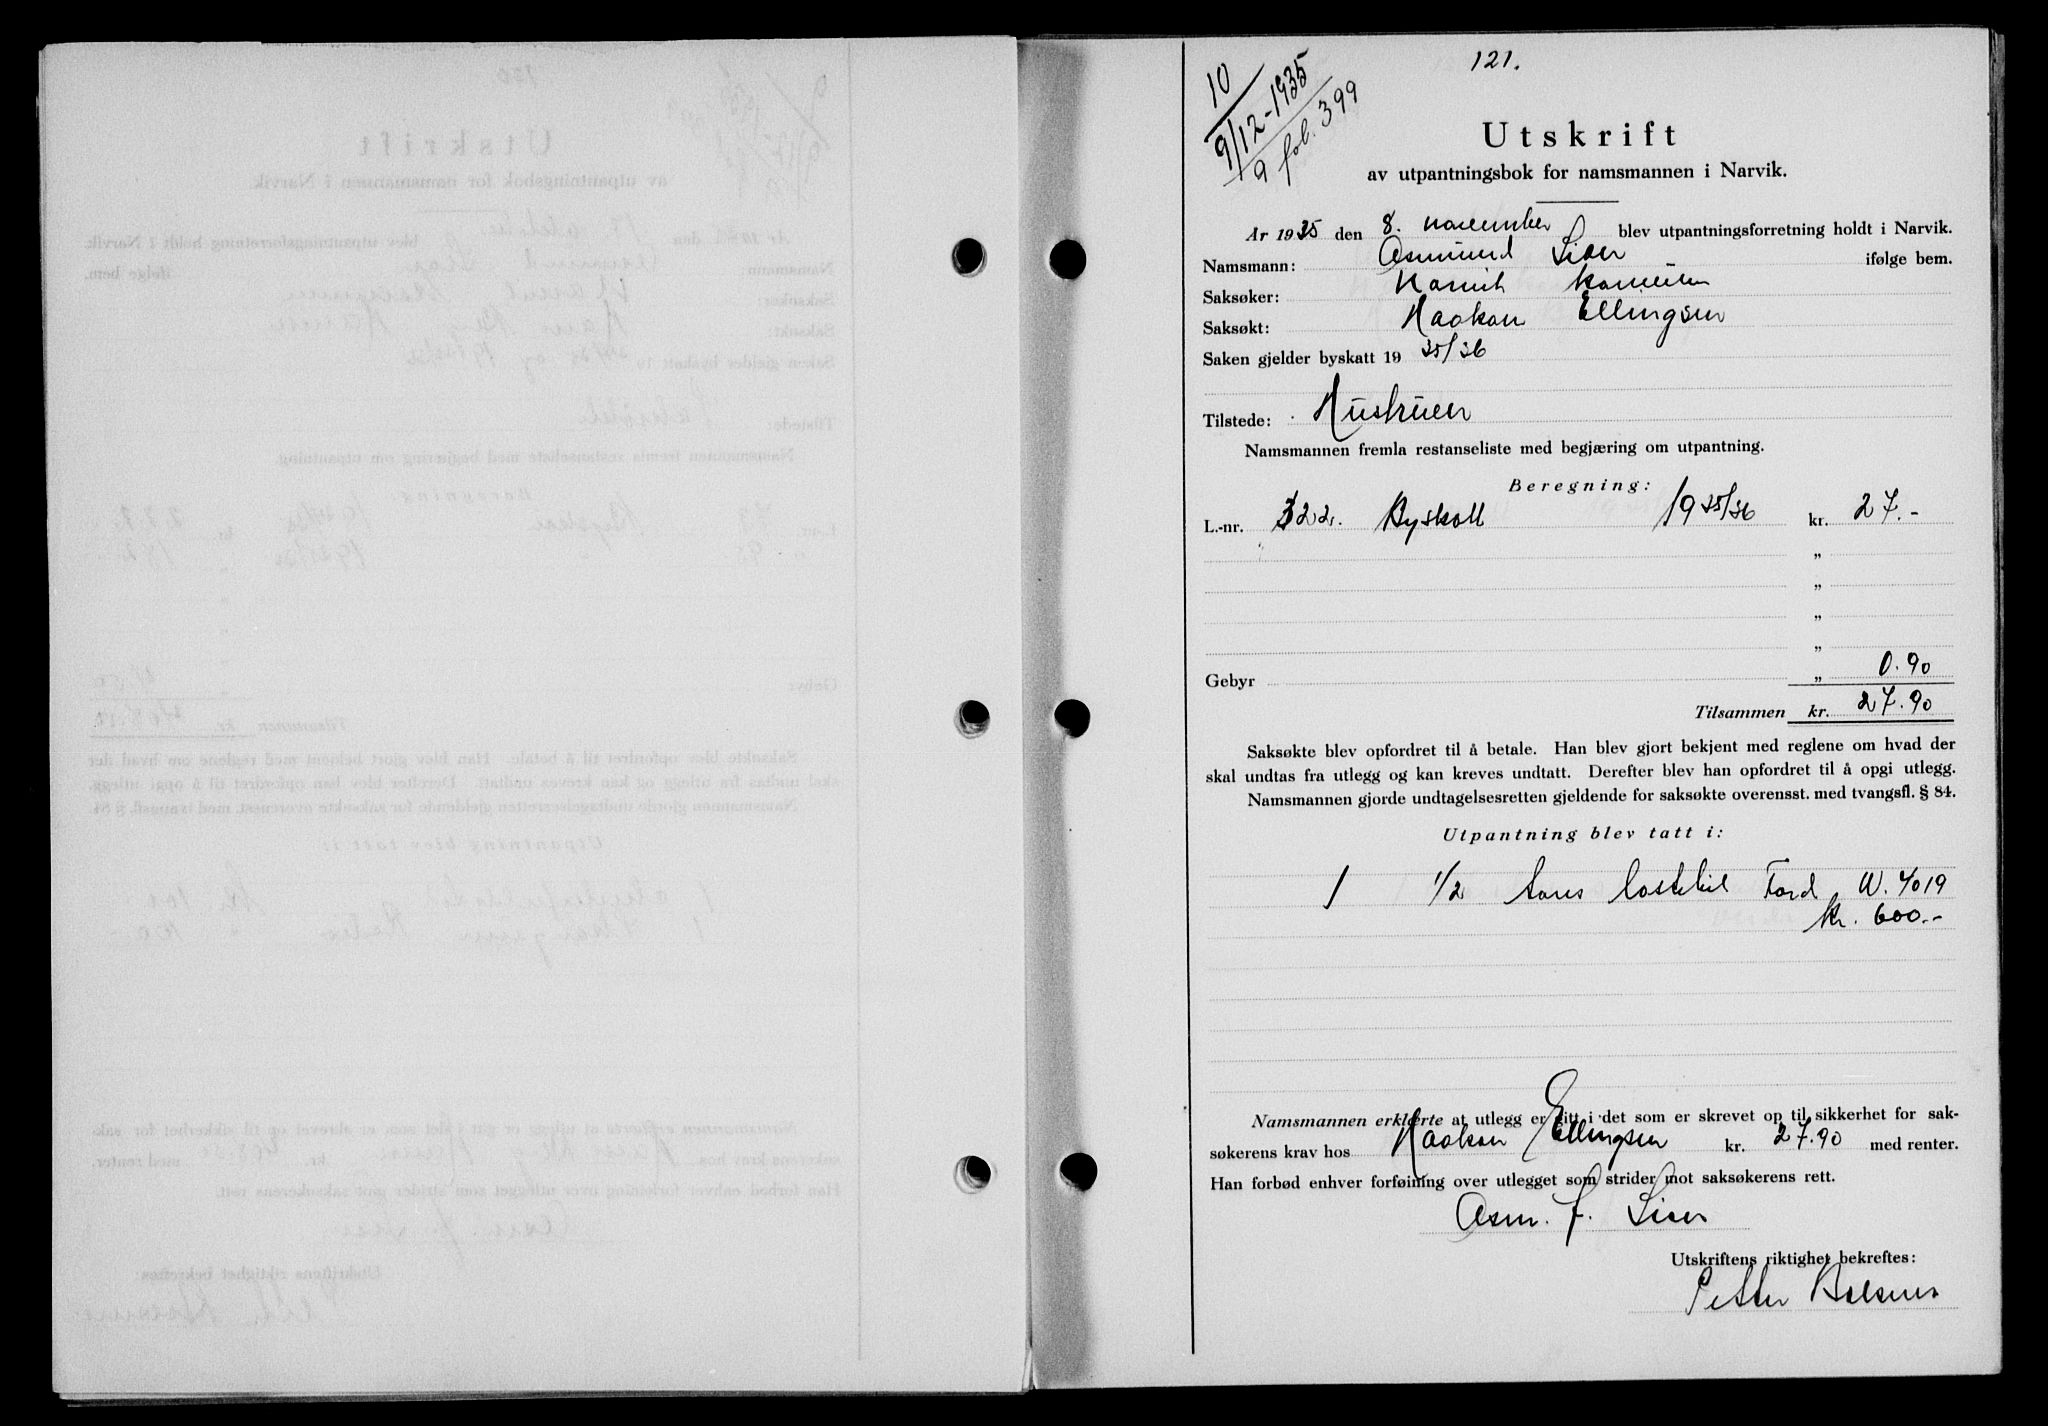 121.
10
9/12-1935
9 fol. 399
Utskrift
av utpantningsbok for namsmannen i Narvik.
Ar 1935 den 8. november blev utpantningsforretning holdt i Narvik.
Namsmann: Asmund ifølge bem.
Saksøker: Narvik
Saksøkt: Haakon Ellingsen
Saken gjelder byskatt 19 35/36
Tilstede: Hustruen
Namsmannen fremla restanseliste med begjæring om utpantning.
Beregning:
L.-nr. 322. Byskatt 1935/36 kr. 27.-
"
"
"
"
Gebyr " 0.90
Tilsammen kr. 27.90
Saksøkte blev opfordret til å betale. Han blev gjort bekjent med reglene om hvad der
skal undtas fra utlegg og kan kreves undtatt. Derefter blev han opfordret til å opgi utlegg.
Namsmannen gjorde undtagelsesretten gjeldende for saksøkte overensst. med tvangsfl. § 84.
Utpantning blev tatt i:
1 1/2 tons lastebil Ford W. 4019
kr. 600.-
Namsmannen erklærte at utlegg er gitt i det som er skrevet op til sikkerhet for sak-
søkerens krav hos Haakon Ellingsen kr. 27.90 med renter.
Han forbød enhver forføining over utlegget som strider mot saksøkerens rett.
Asm. J.
Utskriftens riktighet bekreftes:
Petter